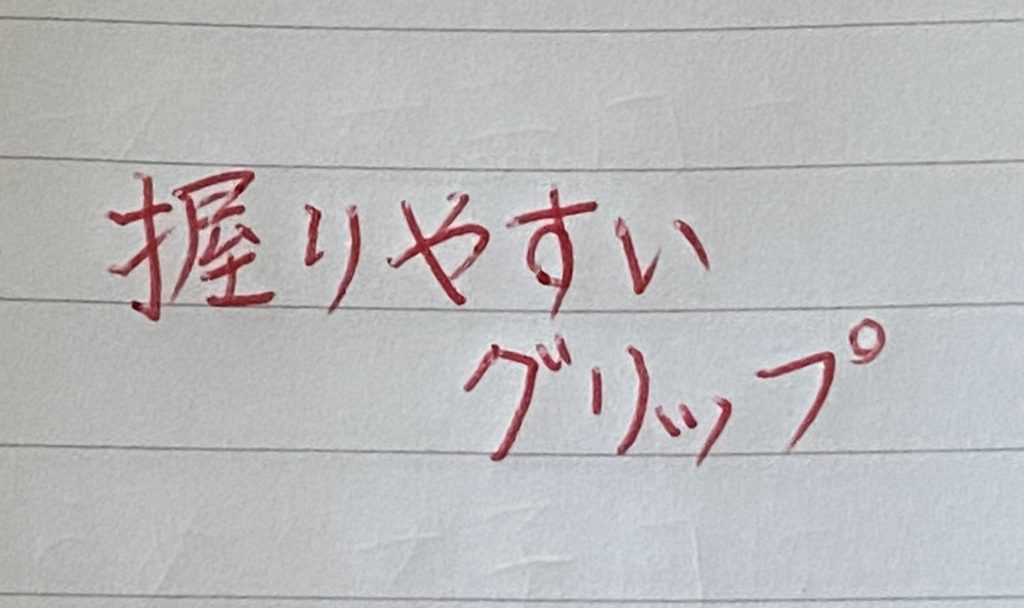 握りやすい
グリップ